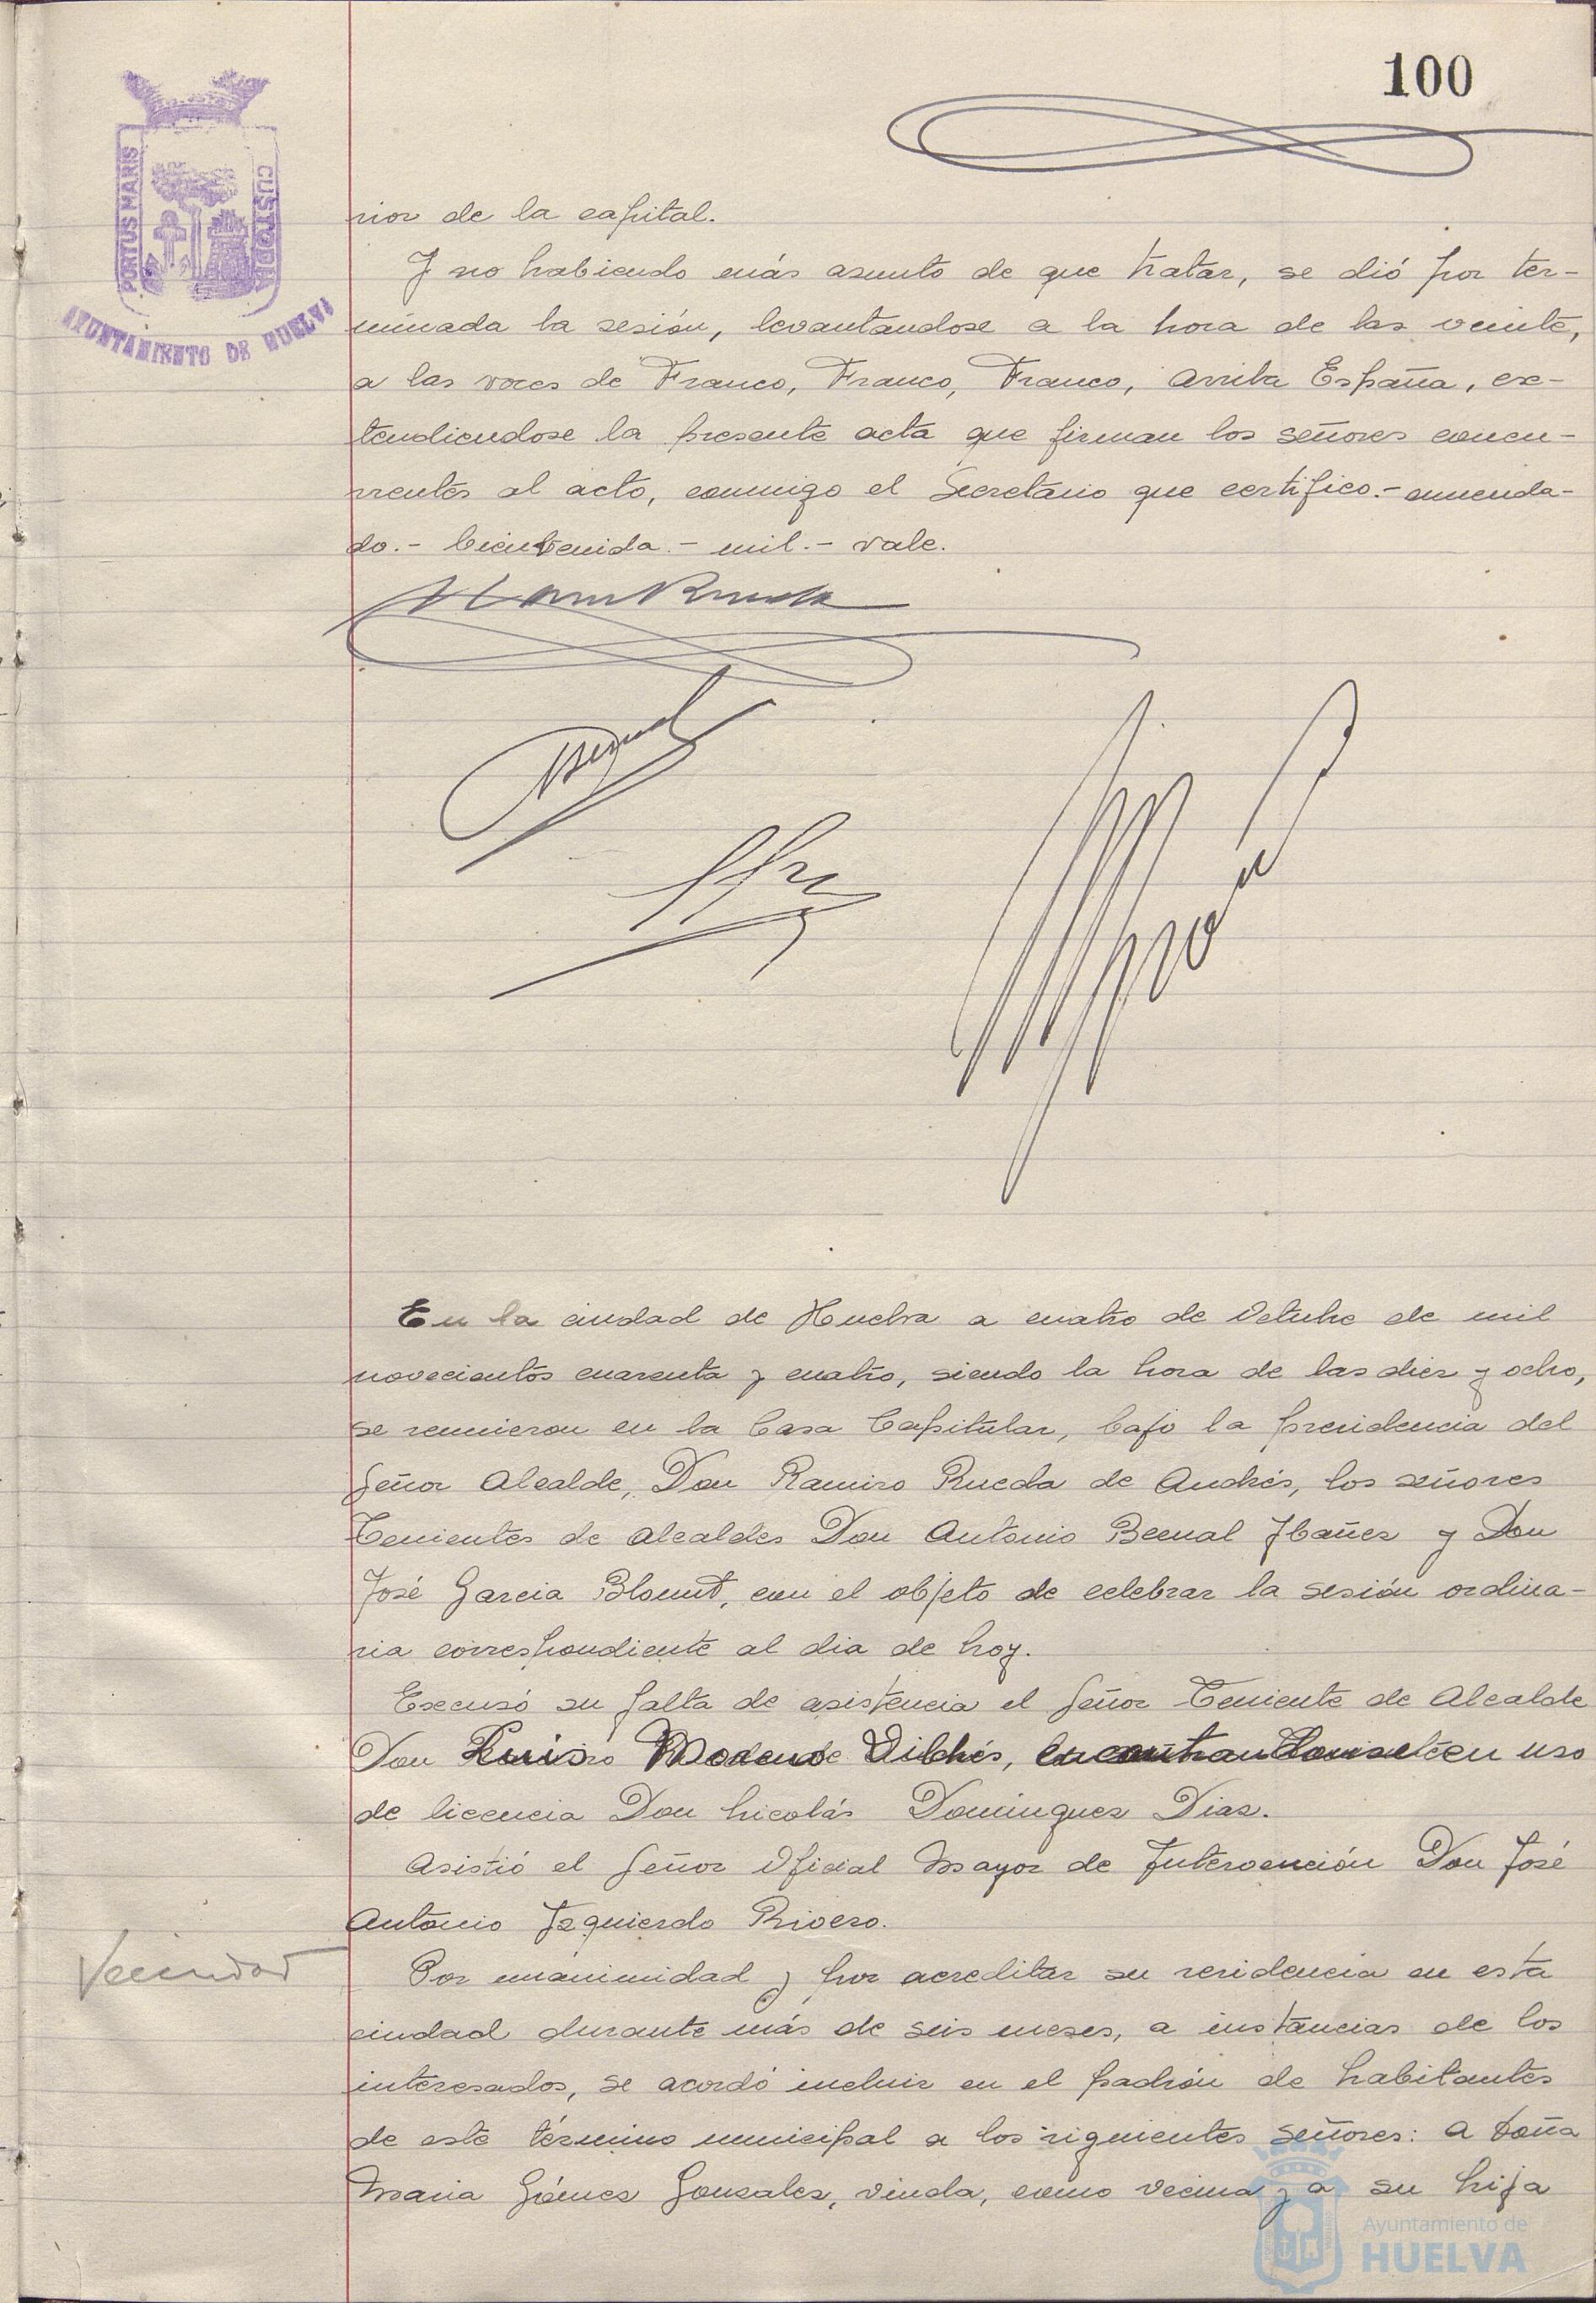 100
PORTUS MARIS
CUSTODIA
AYUNTAMIENTO DE HUELVA
rior de la capital.
Y no habiendo más asunto de que tratar, se dió por ter-
minada la sesión, levantandose a la hora de las veinte,
a las voces de Franco, Franco, Franco, Arriba España, ex-
tendiendose la presente acta que firman los señores concu-
rrentes al acto, conmigo el Secretario que certifico.- enmenda-
do.- bienvenida.- mil.- vale.
En la ciudad de Huelva a cuatro de Octubre de mil
novecientos cuarenta y cuatro, siendo la hora de las diez y ocho,
se reunieron en la Casa Capitular, bajo la presidencia del
Señor Alcalde, Don Ramiro Rueda de Andrés, los señores
Tenientes de Alcaldes Don Antonio Bernal Ibañez y Don
José Garcia Blount, con el objeto de celebrar la sesión ordina-
ria correspondiente al dia de hoy.
Excusó su falta de asistencia el Señor Teniente de Alcalde
Don Luis Moreno Vilches, encontrandose en uso
de licencia Don Nicolás Dominguez Diaz.
Asistió el Señor Oficial Mayor de Intervención Don José
Antonio Izquierdo Rivero.
Vecindad
Por unanimidad y por acreditar su residencia en esta
ciudad durante más de seis meses, a instancias de los
interesados, se acordó incluir en el padrón de habitantes
de este término municipal a los siguientes señores: a Doña
Maria Gómez Gonzalez, viuda, como vecina y a su hija
Ayuntamiento de
HUELVA